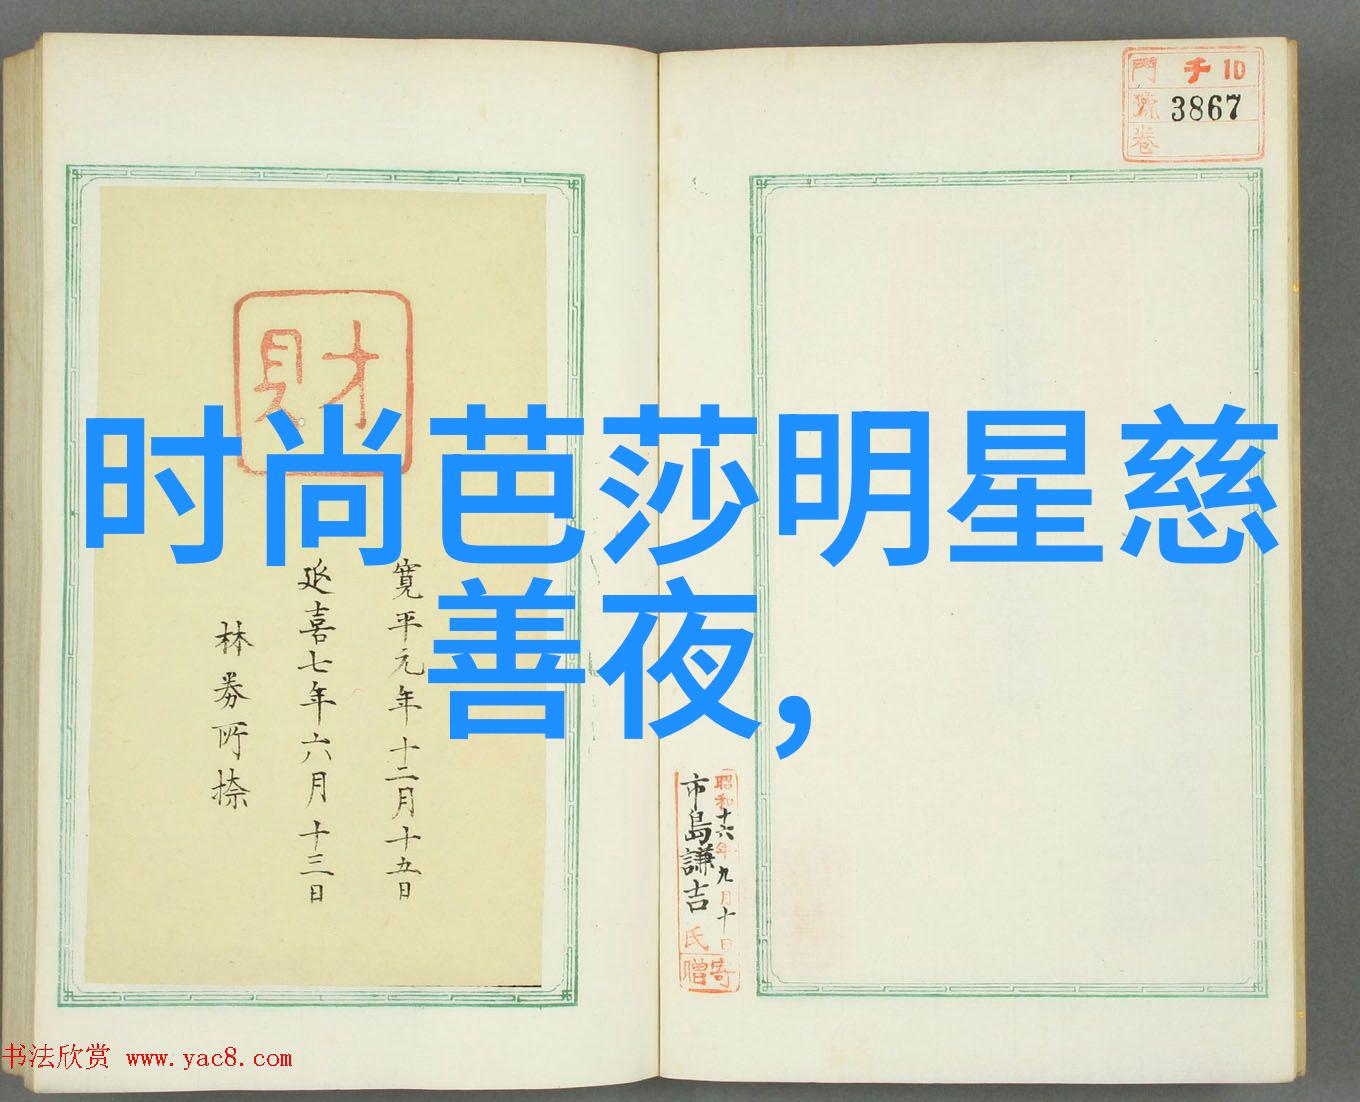 門 千 10
號 3867
卷
財
时尚芭莎明星慈
善夜,
寛平元年十二月十五日
延喜七年六月十三日
林券所捺
昭和十六年九月十日
市島謙吉氏寄贈
书法欣赏 www.yac8.com